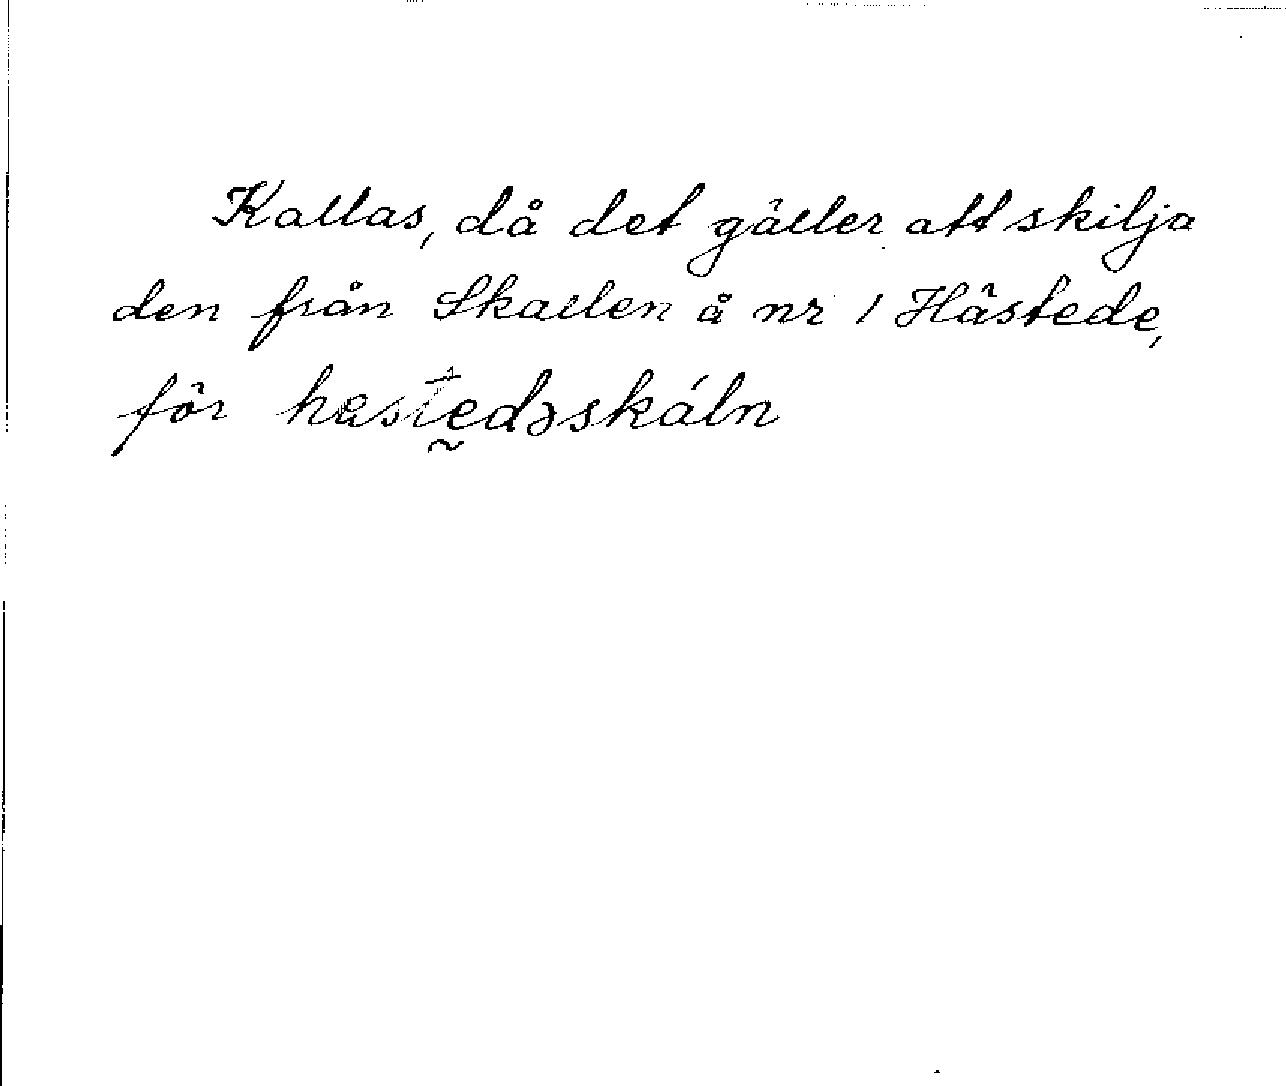 Kallas, då det gäller att skilja
den från Skallen å nr 1 Hästede,
för hestedəskáln